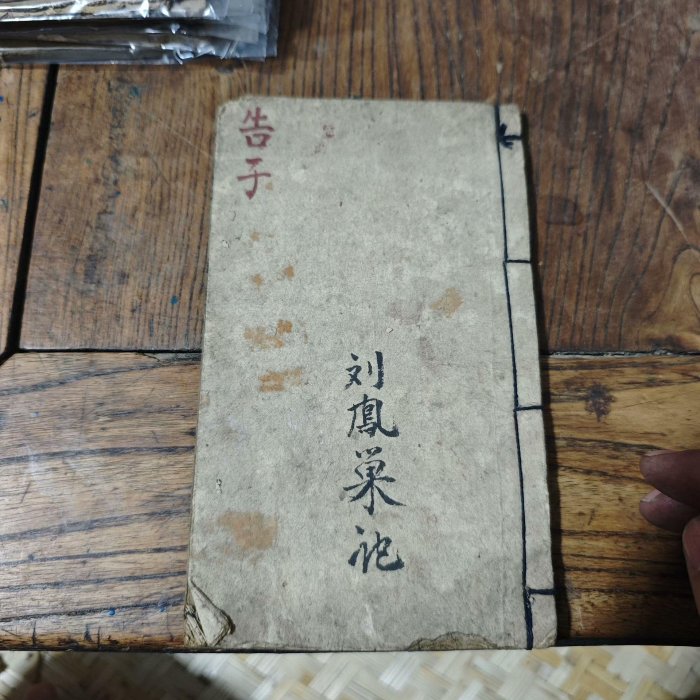 告子
刘鳳巢記